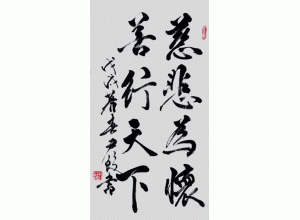 慈悲為懷
善行天下
戊戌暮春
書